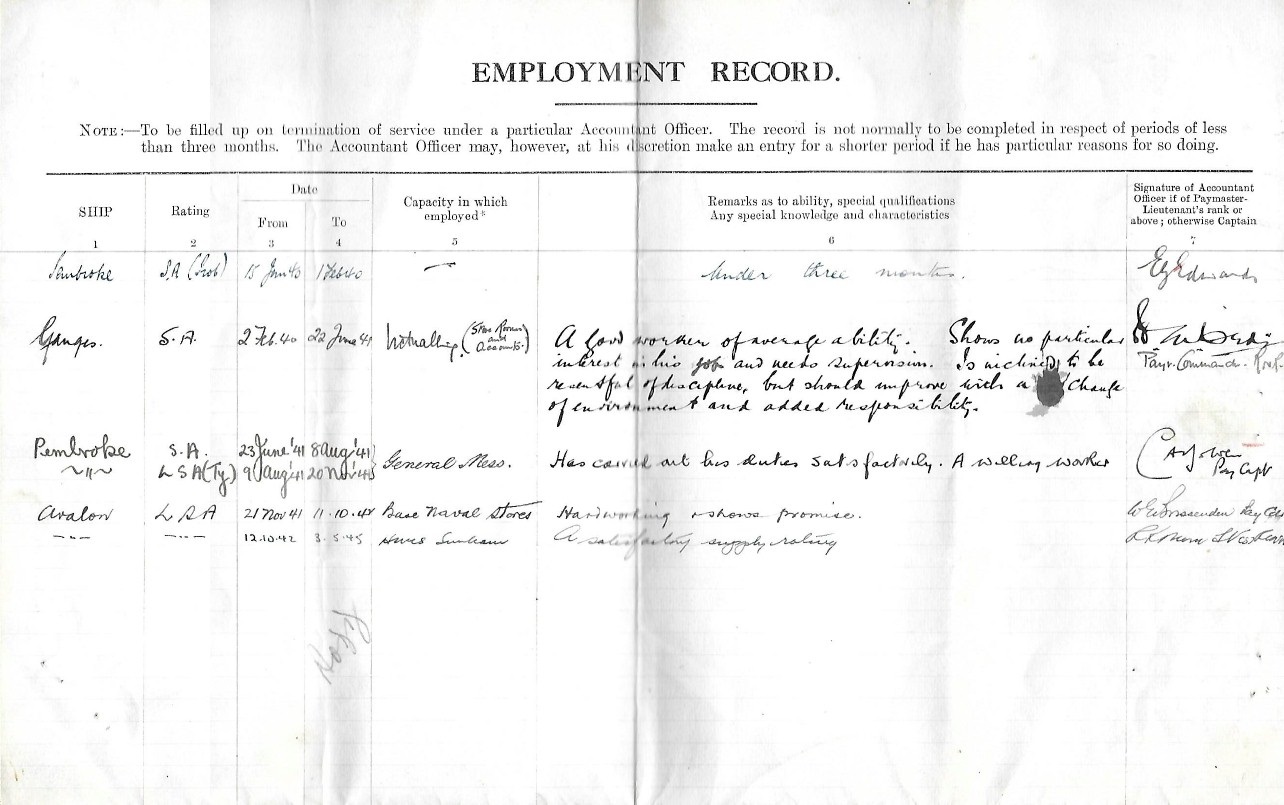 EMPLOYMENT RECORD.
NOTE:—To be filled up on termination of service under a particular Accountant Officer. The record is not normally to be completed in respect of periods of less
than three months. The Accountant Officer may, however, at his discretion make an entry for a shorter period if he has particular reasons for so doing.
SHIP
1
Rating
2
Date
From
3
To
4
Capacity in which
employed*
5
Remarks as to ability, special qualifications
Any special knowledge and characteristics
6
Signature of Accountant
Officer if of Paymaster-
Lieutenant's rank or
above; otherwise Captain
7
Pembroke S.A (Prob) 15 Jan 40 1 Feb 40 — Under three months. Edwards
Ganges. S.A. 2 Feb. 40 22 June 41 Victualling (Store Rooms and Accounts.) A good worker of average ability. Shows no particular
interest in his job and needs supervision. Is inclined to be
resentful of discipline, but should improve with a change
of environment and added responsibility.
Payr. Commander.
Pembroke S.A. 23 June '41 8 Aug '41
—"— L S A (Ty) 9 Aug '41 20 Nov '41 General Mess. Has carried out his duties satisfactorily. A willing worker
Pay Capt
Avalon L S A 21 Nov 41 11.10.42 Base Naval Stores Hardworking & shows promise.
—"— —"— 12.10.42 3.5.45 A satisfactory supply rating